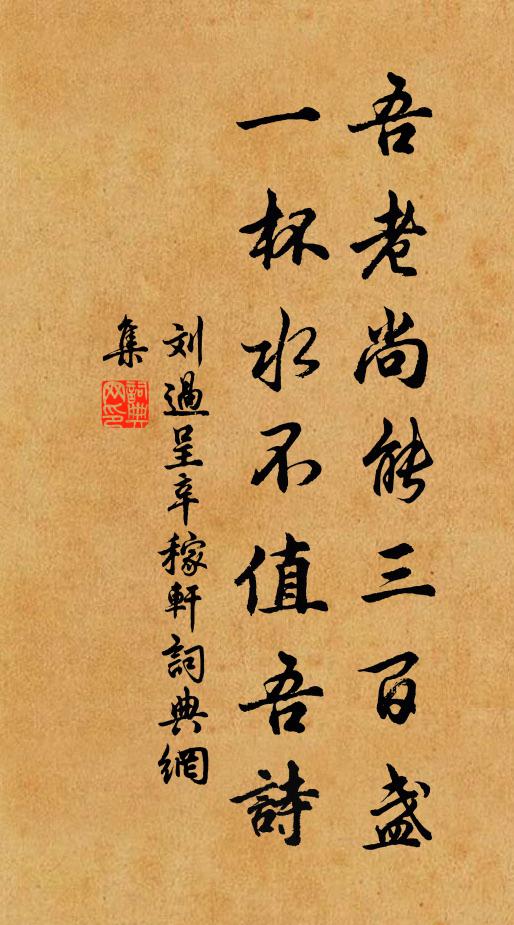 吾老尚能三百盏
一杯水不值吾詩
刘過呈辛稼軒詞典網
集
詞典
网印